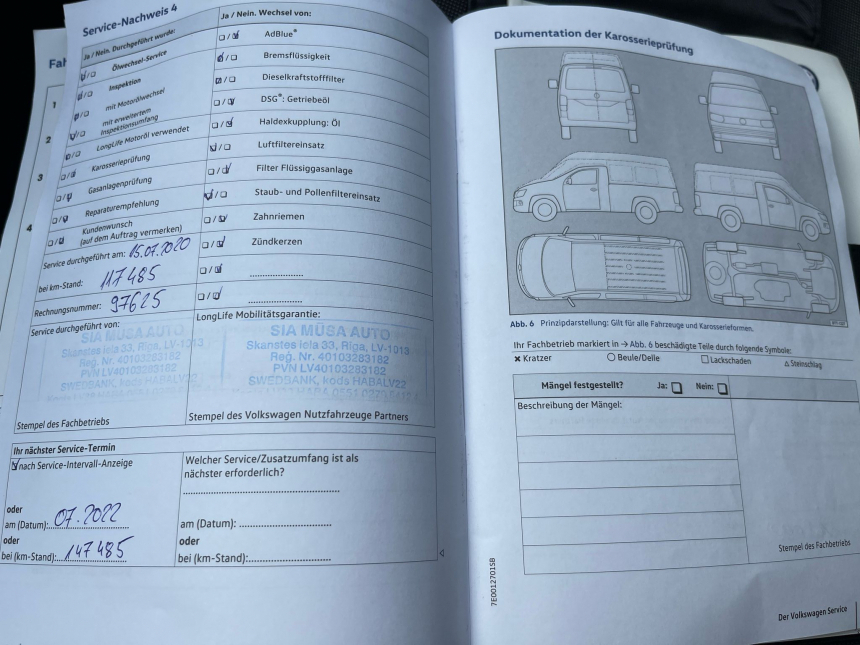 Service-Nachweis 4
Ja / Nein. Durchgeführt wurde:
Ölwechsel-Service
Inspektion
mit Motorölwechsel
mit erweitertem
Inspektionsumfang
LongLife Motoröl verwendet
Karosserieprüfung
Gasanlagenprüfung
Reparaturempfehlung
Kundenwunsch
(auf dem Auftrag vermerken)
Service durchgeführt am: 15.07.2020
bei km-Stand: 117485
Rechnungsnummer: 97625
Service durchgeführt von:
SIA MŪSA AUTO
Skanstes iela 33, Rīga, LV-1013
Reģ. Nr. 40103283182
PVN LV40103283182
SWEDBANK, kods HABALV22
Stempel des Fachbetriebs
Ja / Nein. Wechsel von:
AdBlue®
Bremsflüssigkeit
Dieselkraftstofffilter
DSG®: Getriebeöl
Haldexkupplung: Öl
Luftfiltereinsatz
Filter Flüssiggasanlage
Staub- und Pollenfiltereinsatz
Zahnriemen
Zündkerzen
LongLife Mobilitätsgarantie:
SIA MŪSA AUTO
Skanstes iela 33, Rīga, LV-1013
Reģ. Nr. 40103283182
PVN LV40103283182
SWEDBANK, kods HABALV22
Stempel des Volkswagen Nutzfahrzeuge Partners
Ihr nächster Service-Termin
nach Service-Intervall-Anzeige
oder
am (Datum): 07.2022
oder
bei (km-Stand): 147485
Welcher Service/Zusatzumfang ist als
nächster erforderlich?
am (Datum):
oder
bei (km-Stand):
Fah
1
2
3
4
Dokumentation der Karosserieprüfung
Abb. 6 Prinzipdarstellung: Gilt für alle Fahrzeuge und Karosserieformen.
Ihr Fachbetrieb markiert in → Abb. 6 beschädigte Teile durch folgende Symbole:
Kratzer
Beule/Delle
Lackschaden
Steinschlag
Mängel festgestellt? Ja: Nein:
Beschreibung der Mängel:
Stempel des Fachbetriebs
7E0012701SB
Der Volkswagen Service